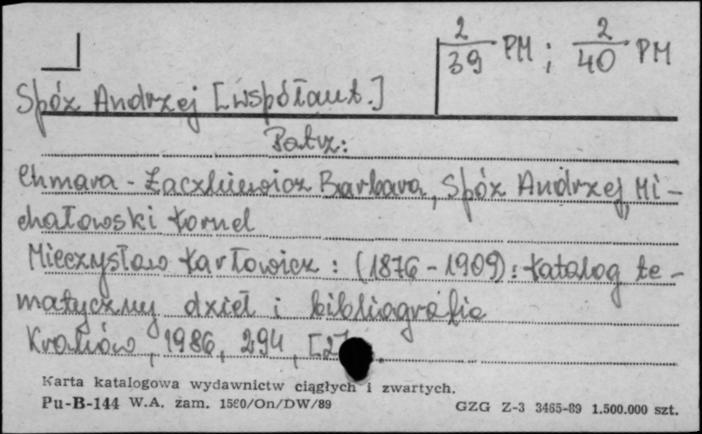 2/39 PM ; 2/40 PM
Spóz Andrzej [współaut.]
Patrz:
Chmara-Żaczkiewicz Barbara, Spóz Andrzej, Mi-
chałowski Kornel
Mieczysław Karłowicz : (1876-1909) : katalog te-
matyczny dzieł i bibliografia
Kraków, 1986, 294, [2]
Karta katalogowa wydawnictw ciągłych i zwartych.
Pu-B-144 W.A. zam. 1560/On/DW/89 GZG Z-3 3465-89 1.500.000 szt.